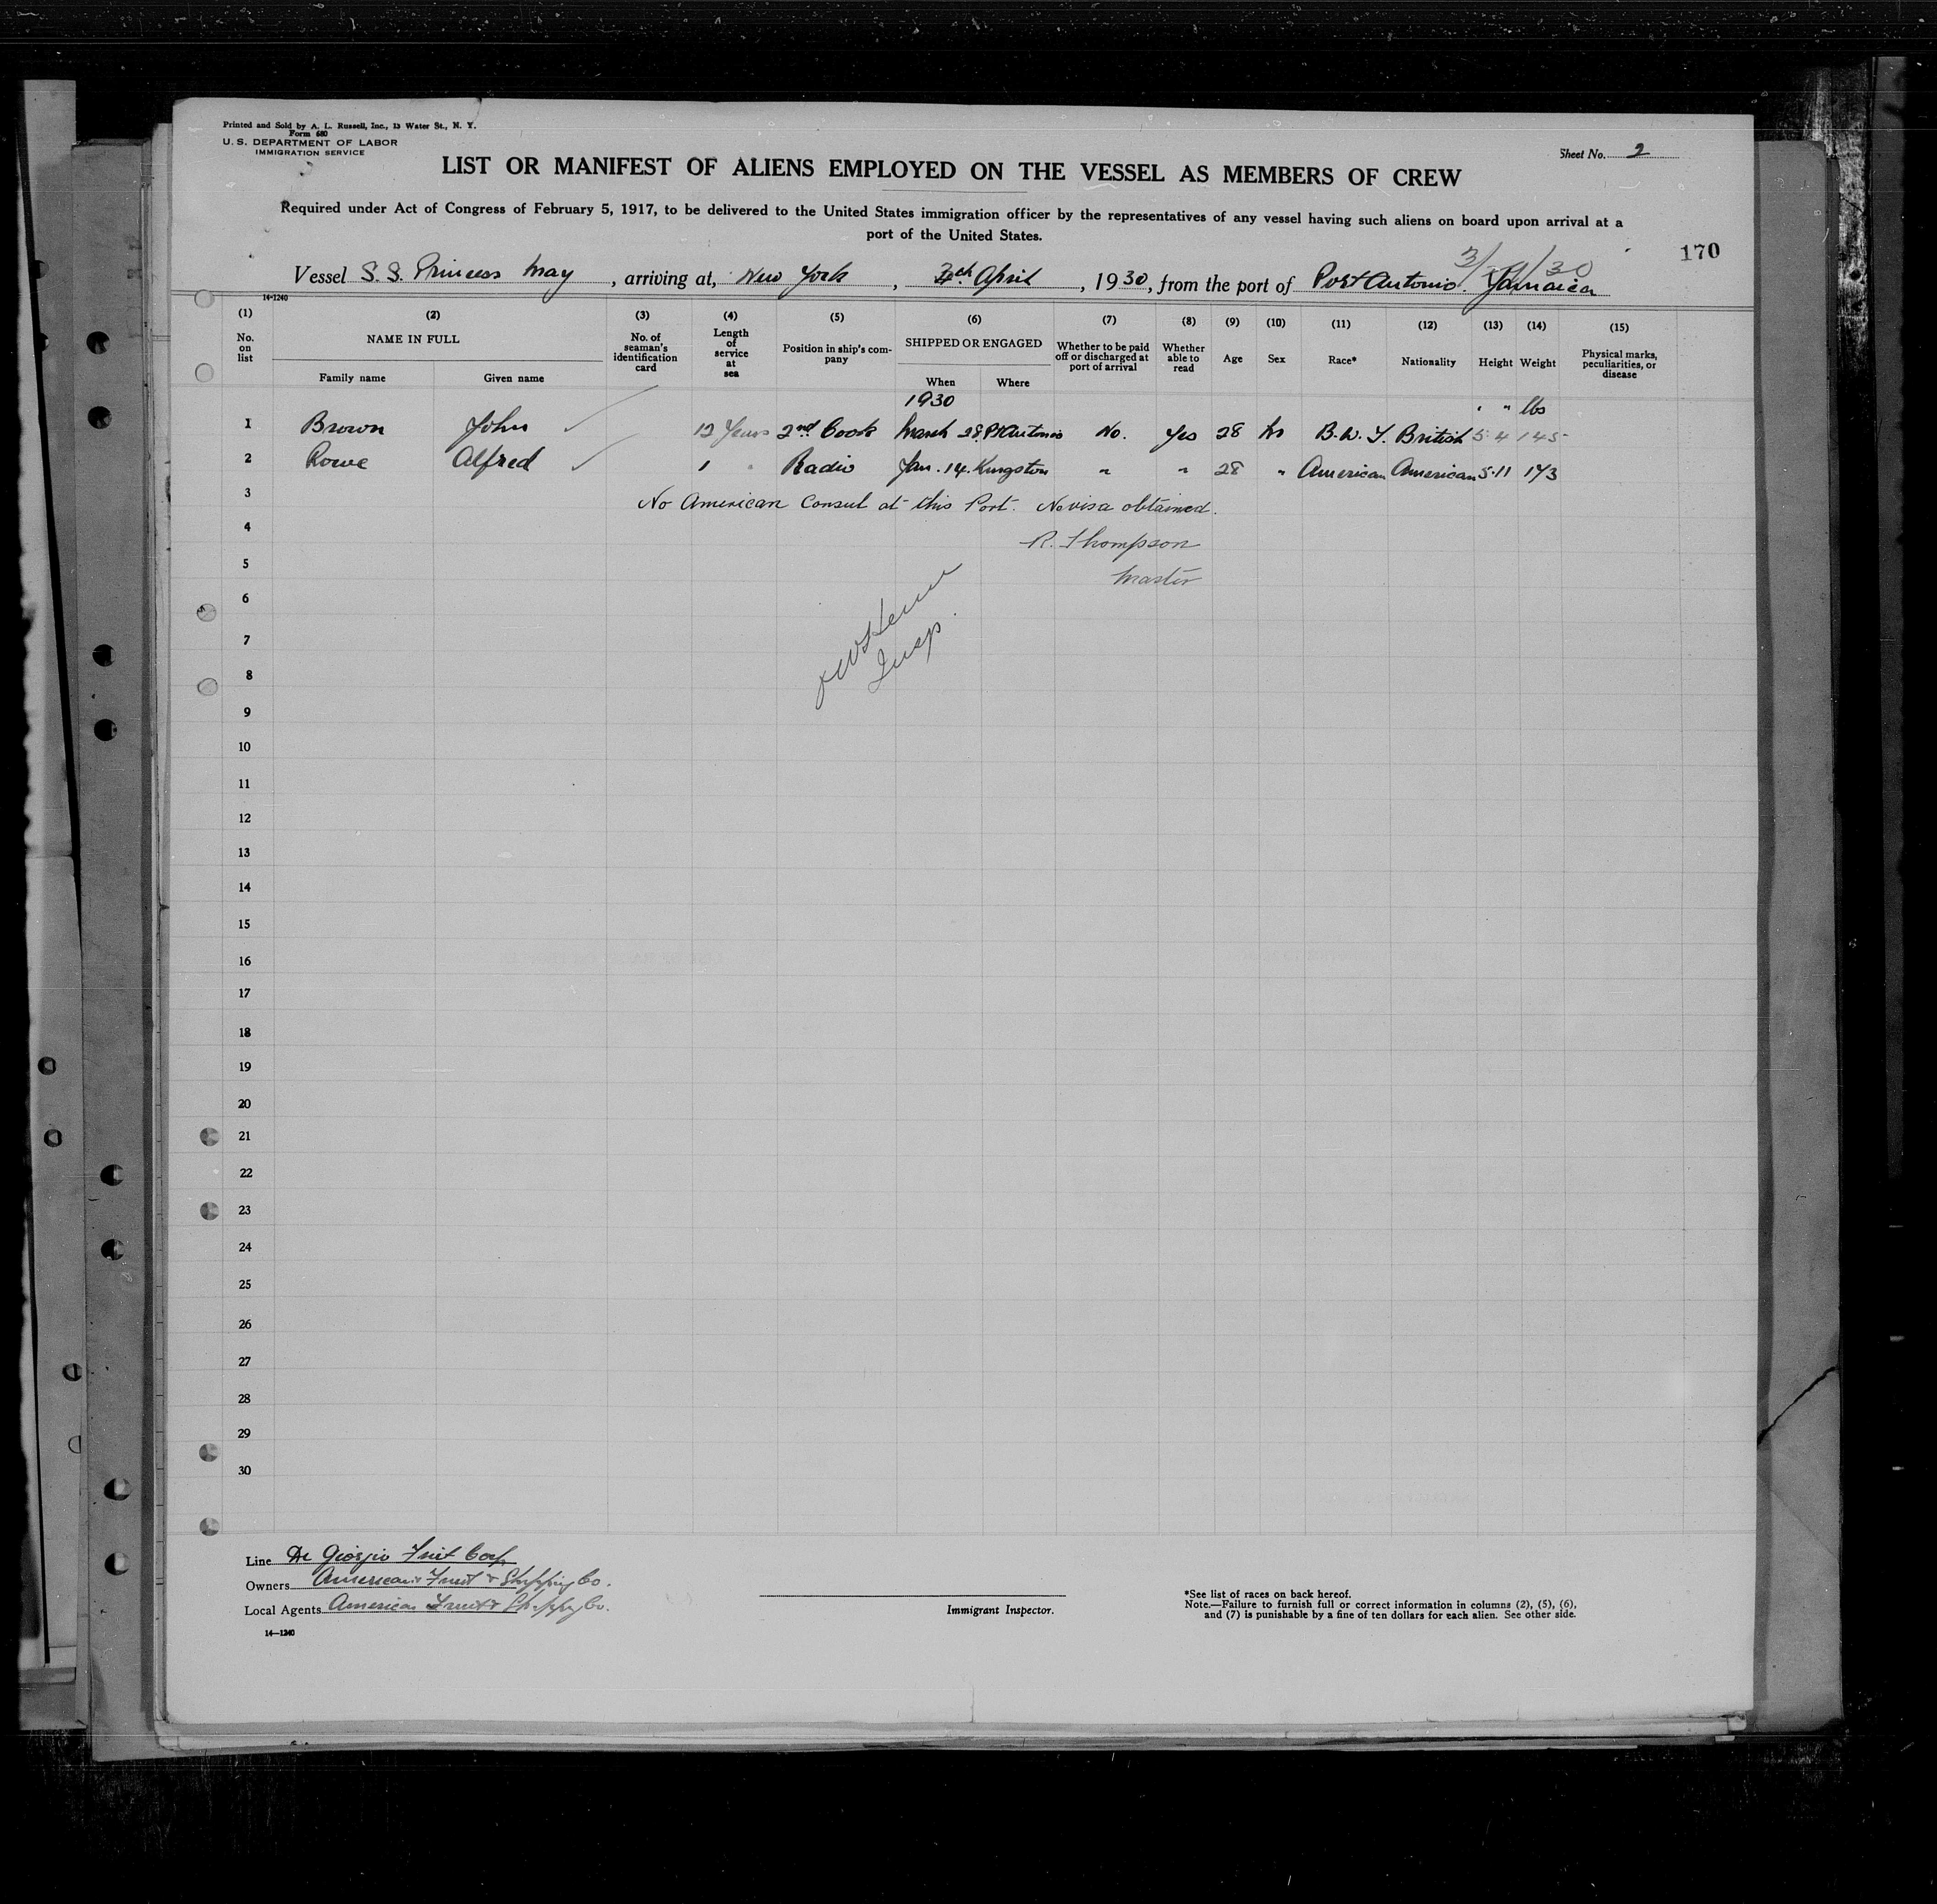 Printed and Sold by A. L. Russell, Inc., 13 Water St., N. Y.
Form 680
U. S. DEPARTMENT OF LABOR
IMMIGRATION SERVICE
Sheet No. 2
LIST OR MANIFEST OF ALIENS EMPLOYED ON THE VESSEL AS MEMBERS OF CREW
Required under Act of Congress of February 5, 1917, to be delivered to the United States immigration officer by the representatives of any vessel having such aliens on board upon arrival at a
port of the United States.
170
Vessel S. S. Princess May, arriving at, New York, April, 1930, from the port of Port Antonio. Jamaica
14-1240
(1) (2) (3) (4) (5) (6) (7) (8) (9) (10) (11) (12) (13) (14) (15)
No. on list NAME IN FULL No. of seaman's identification card Length of service at sea Position in ship's company SHIPPED OR ENGAGED Whether to be paid off or discharged at port of arrival Whether able to read Age Sex Race* Nationality Height Weight Physical marks, peculiarities, or disease
Family name Given name When Where
1930 ' " lbs
1 Brown John 12 Years 2nd Cook March 28. Pt Antonio No. Yes 28 M B.W.I. British 5 4 145
2 Rowe Alfred 1 " Radio Jan. 14. Kingston " " 28 " American American 5.11 173
3 No American Consul at this Port. No visa obtained.
4 R. Thompson
5 Master
6
7 Insp.
8
9
10
11
12
13
14
15
16
17
18
19
20
21
22
23
24
25
26
27
28
29
30
Line Di Giorgio Fruit Corp
Owners American Fruit & Shipping Co.
Local Agents American Fruit & Shipping Co.
14—1240
Immigrant Inspector.
*See list of races on back hereof.
Note.—Failure to furnish full or correct information in columns (2), (5), (6),
and (7) is punishable by a fine of ten dollars for each alien. See other side.